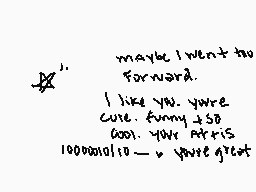 maybe I went too
forward.
I like you. you're
cute. funny + so
cool. your art is
10000010/10 — you're great